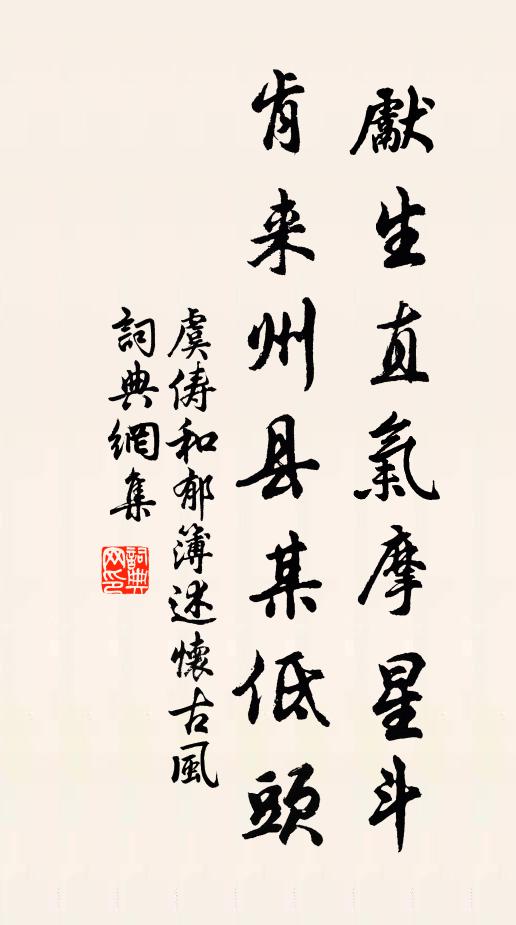 獻生直氣摩星斗
肯来州县某低頭
虞俦和郁簿述懷古風
詞典網集
詞典網印